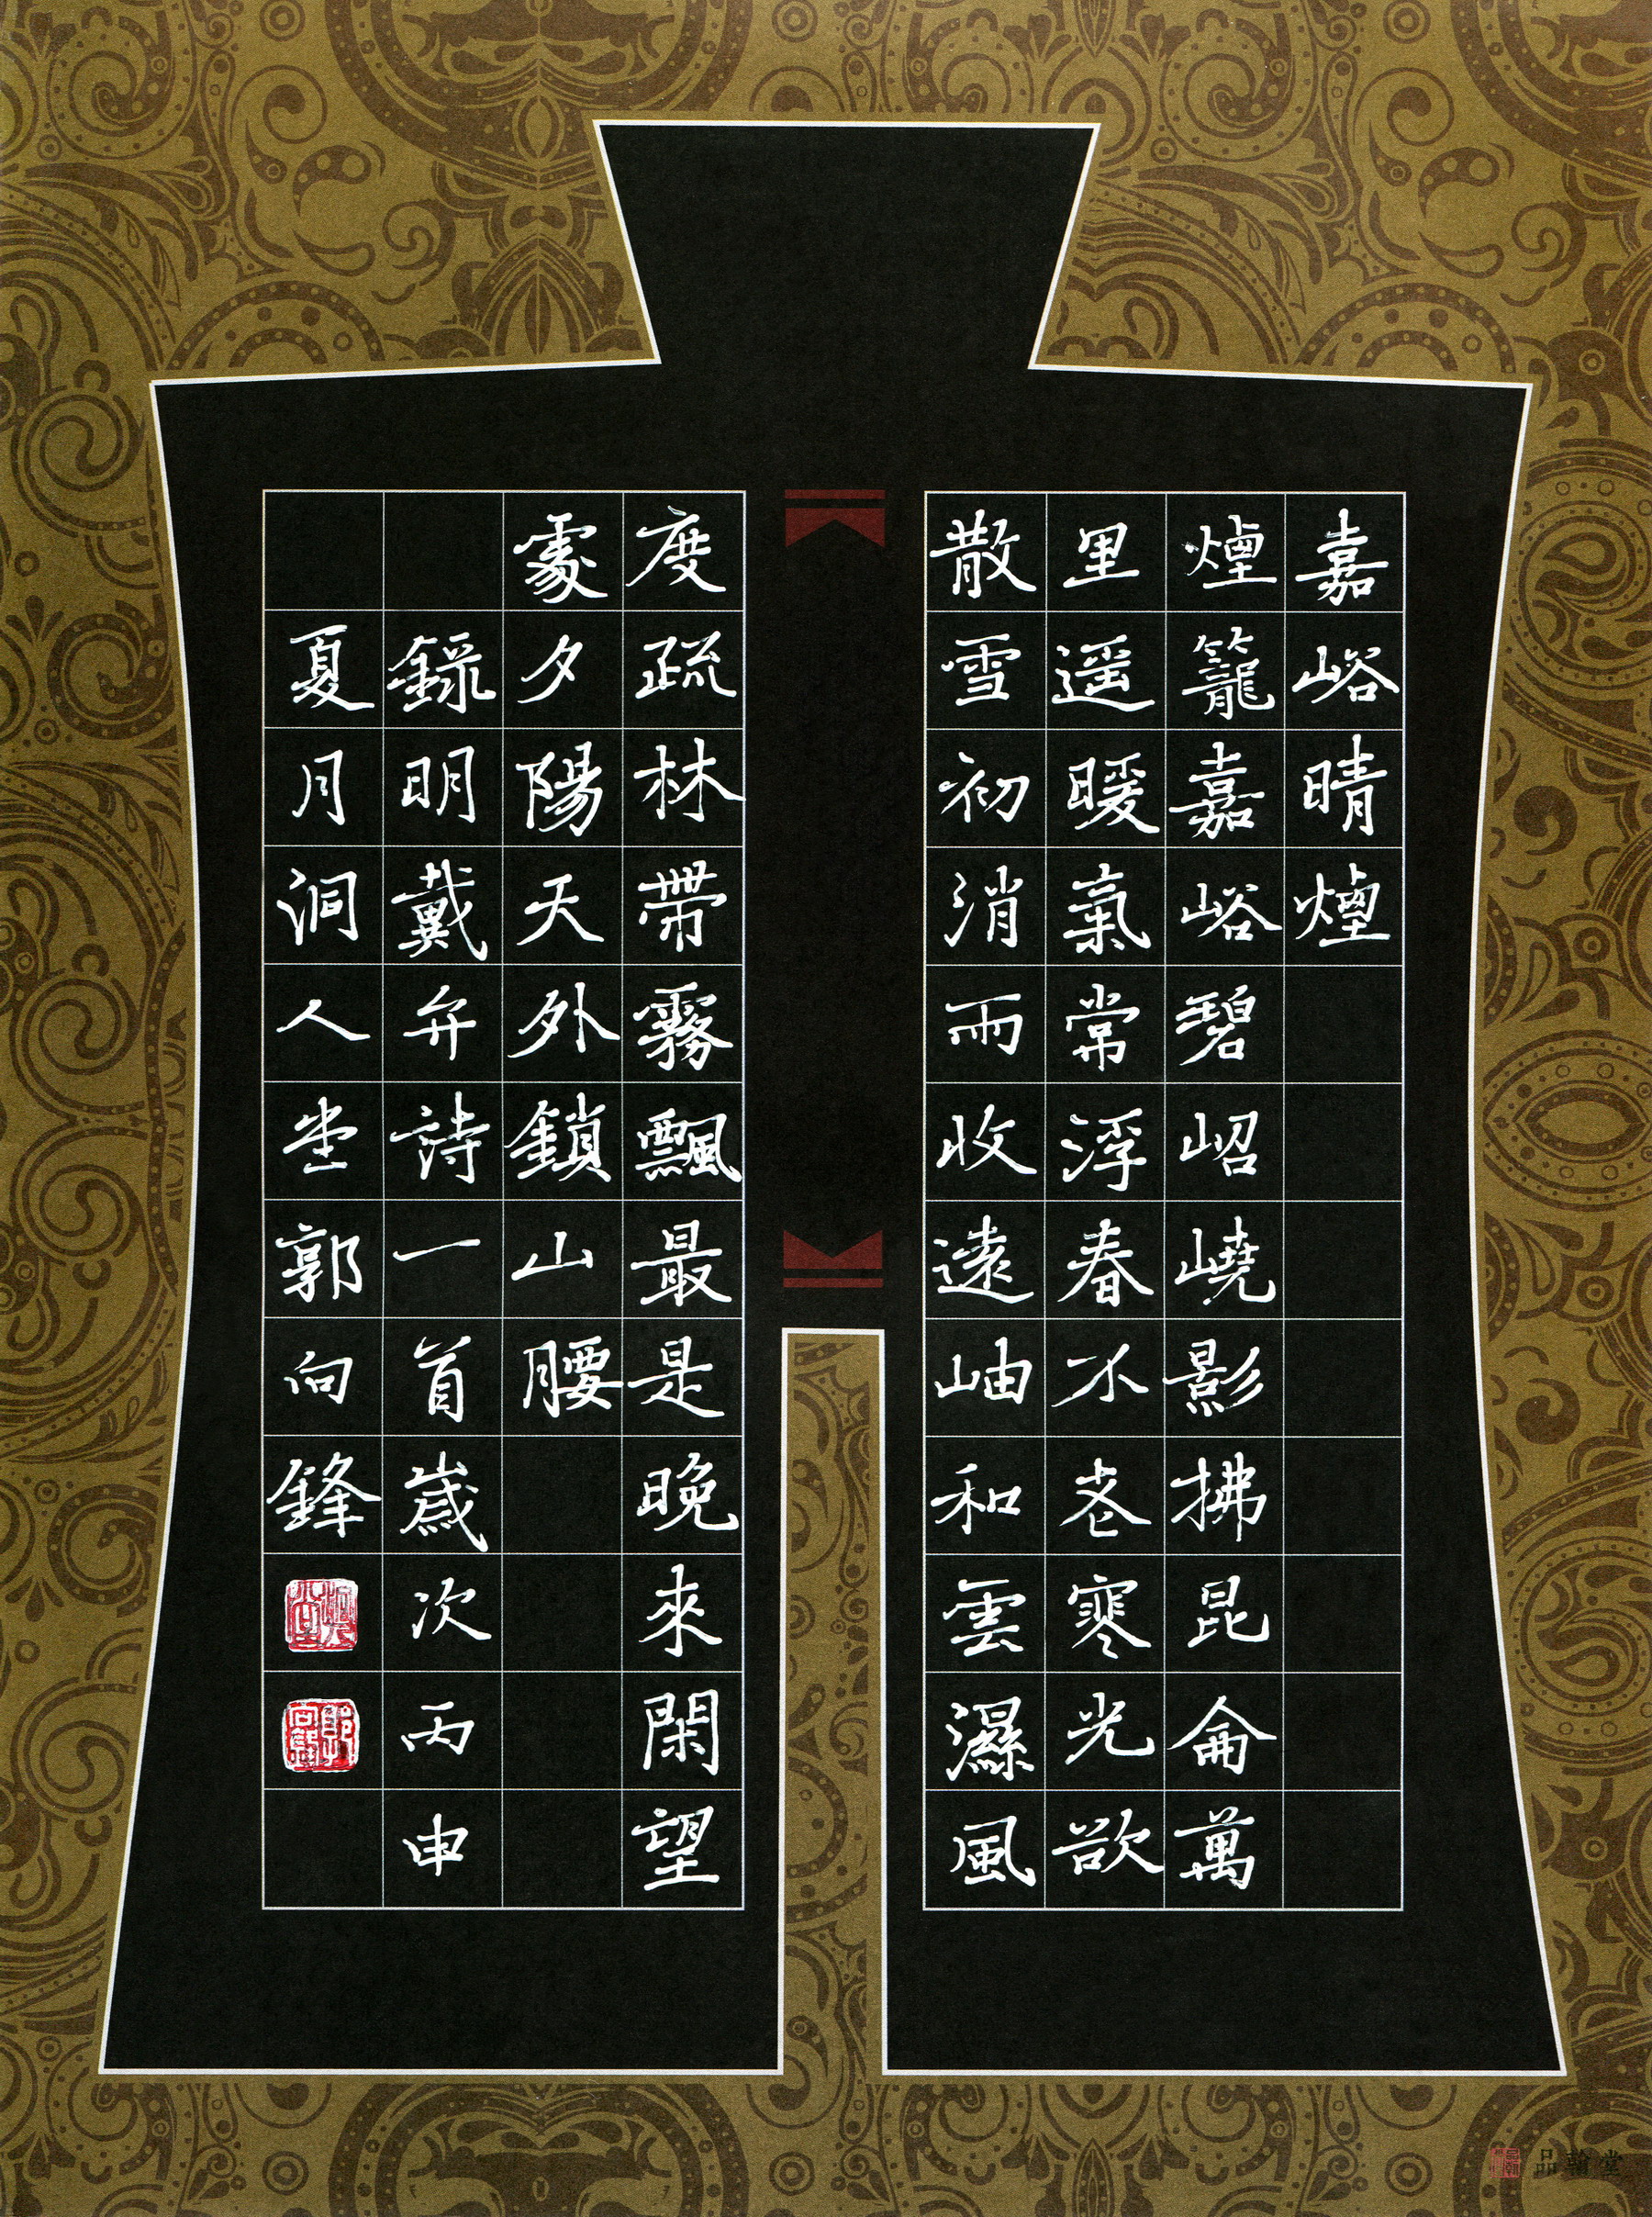 嘉峪晴煙
煙籠嘉峪碧岹嶢影拂昆侖萬
里遥暖氣常浮春不老寒光欲
散雪初消雨收遠岫和雲濕風
度疏林帶霧飄最是晚來閑望
處夕陽天外鎖山腰
錄明戴弁詩一首歲次丙申
夏月洞人堂郭向鋒
品翰堂